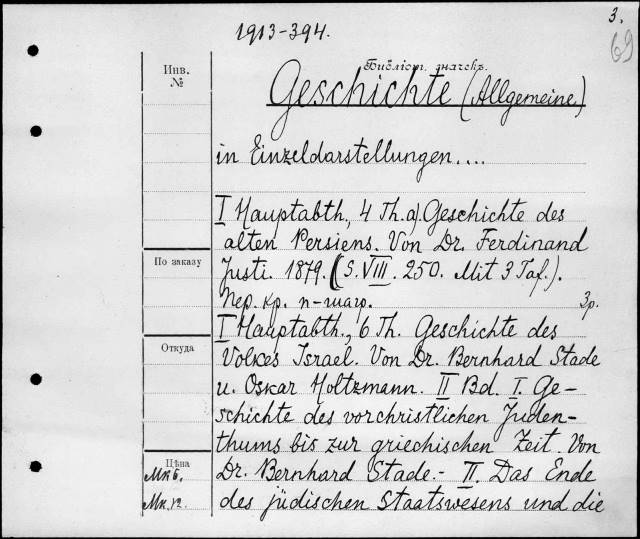 3.
1913-394.
69
Инв.
№
Библіот. значекъ.
Geschichte (Allgemeine)
in Einzeldarstellungen....
I Hauptabth., 4 Th. a) Geschichte des
alten Persiens. Von Dr. Ferdinand
По заказу
Justi. 1879. (S. VIII. 250. Mit 3 Taf.).
Пер. кр. п-шагр. 3р.
I Hauptabth., 6 Th. Geschichte des
Откуда
Volkes Israel. Von Dr. Bernhard Stade
u. Oskar Holtzmann. II Bd. I. Ge-
schichte des vorchristlichen Juden-
thums bis zur griechischen Zeit. Von
Цѣна
Dr. Bernhard Stade.- II. Das Ende
Мк б.
des jüdischen Staatswesens und die
Мк. 12.